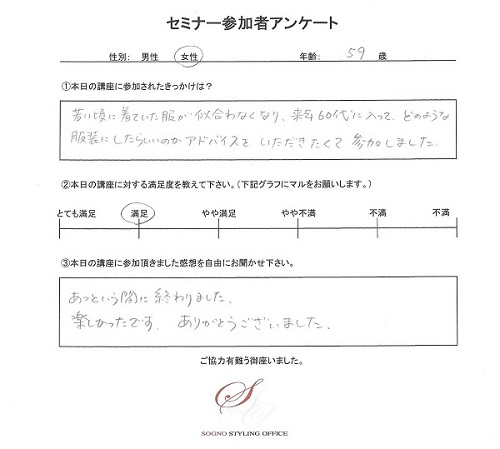 セミナー参加者アンケート
性別： 男性 女性 年齢： 59 歳
①本日の講座に参加されたきっかけは？
若い頃に着ていた服が似合わなくなり、来年60代に入って、どのような
服装にしたらいいのかアドバイスをいただきたくて参加しました。
②本日の講座に対する満足度を教えて下さい。（下記グラフにマルをお願いします。）
とても満足 満足 やや満足 やや不満 不満 不満
③本日の講座に参加頂きました感想を自由にお聞かせ下さい。
あっという間に終わりました。
楽しかったです。ありがとうございました。
ご協力有難う御座いました。
SOGNO STYLING OFFICE